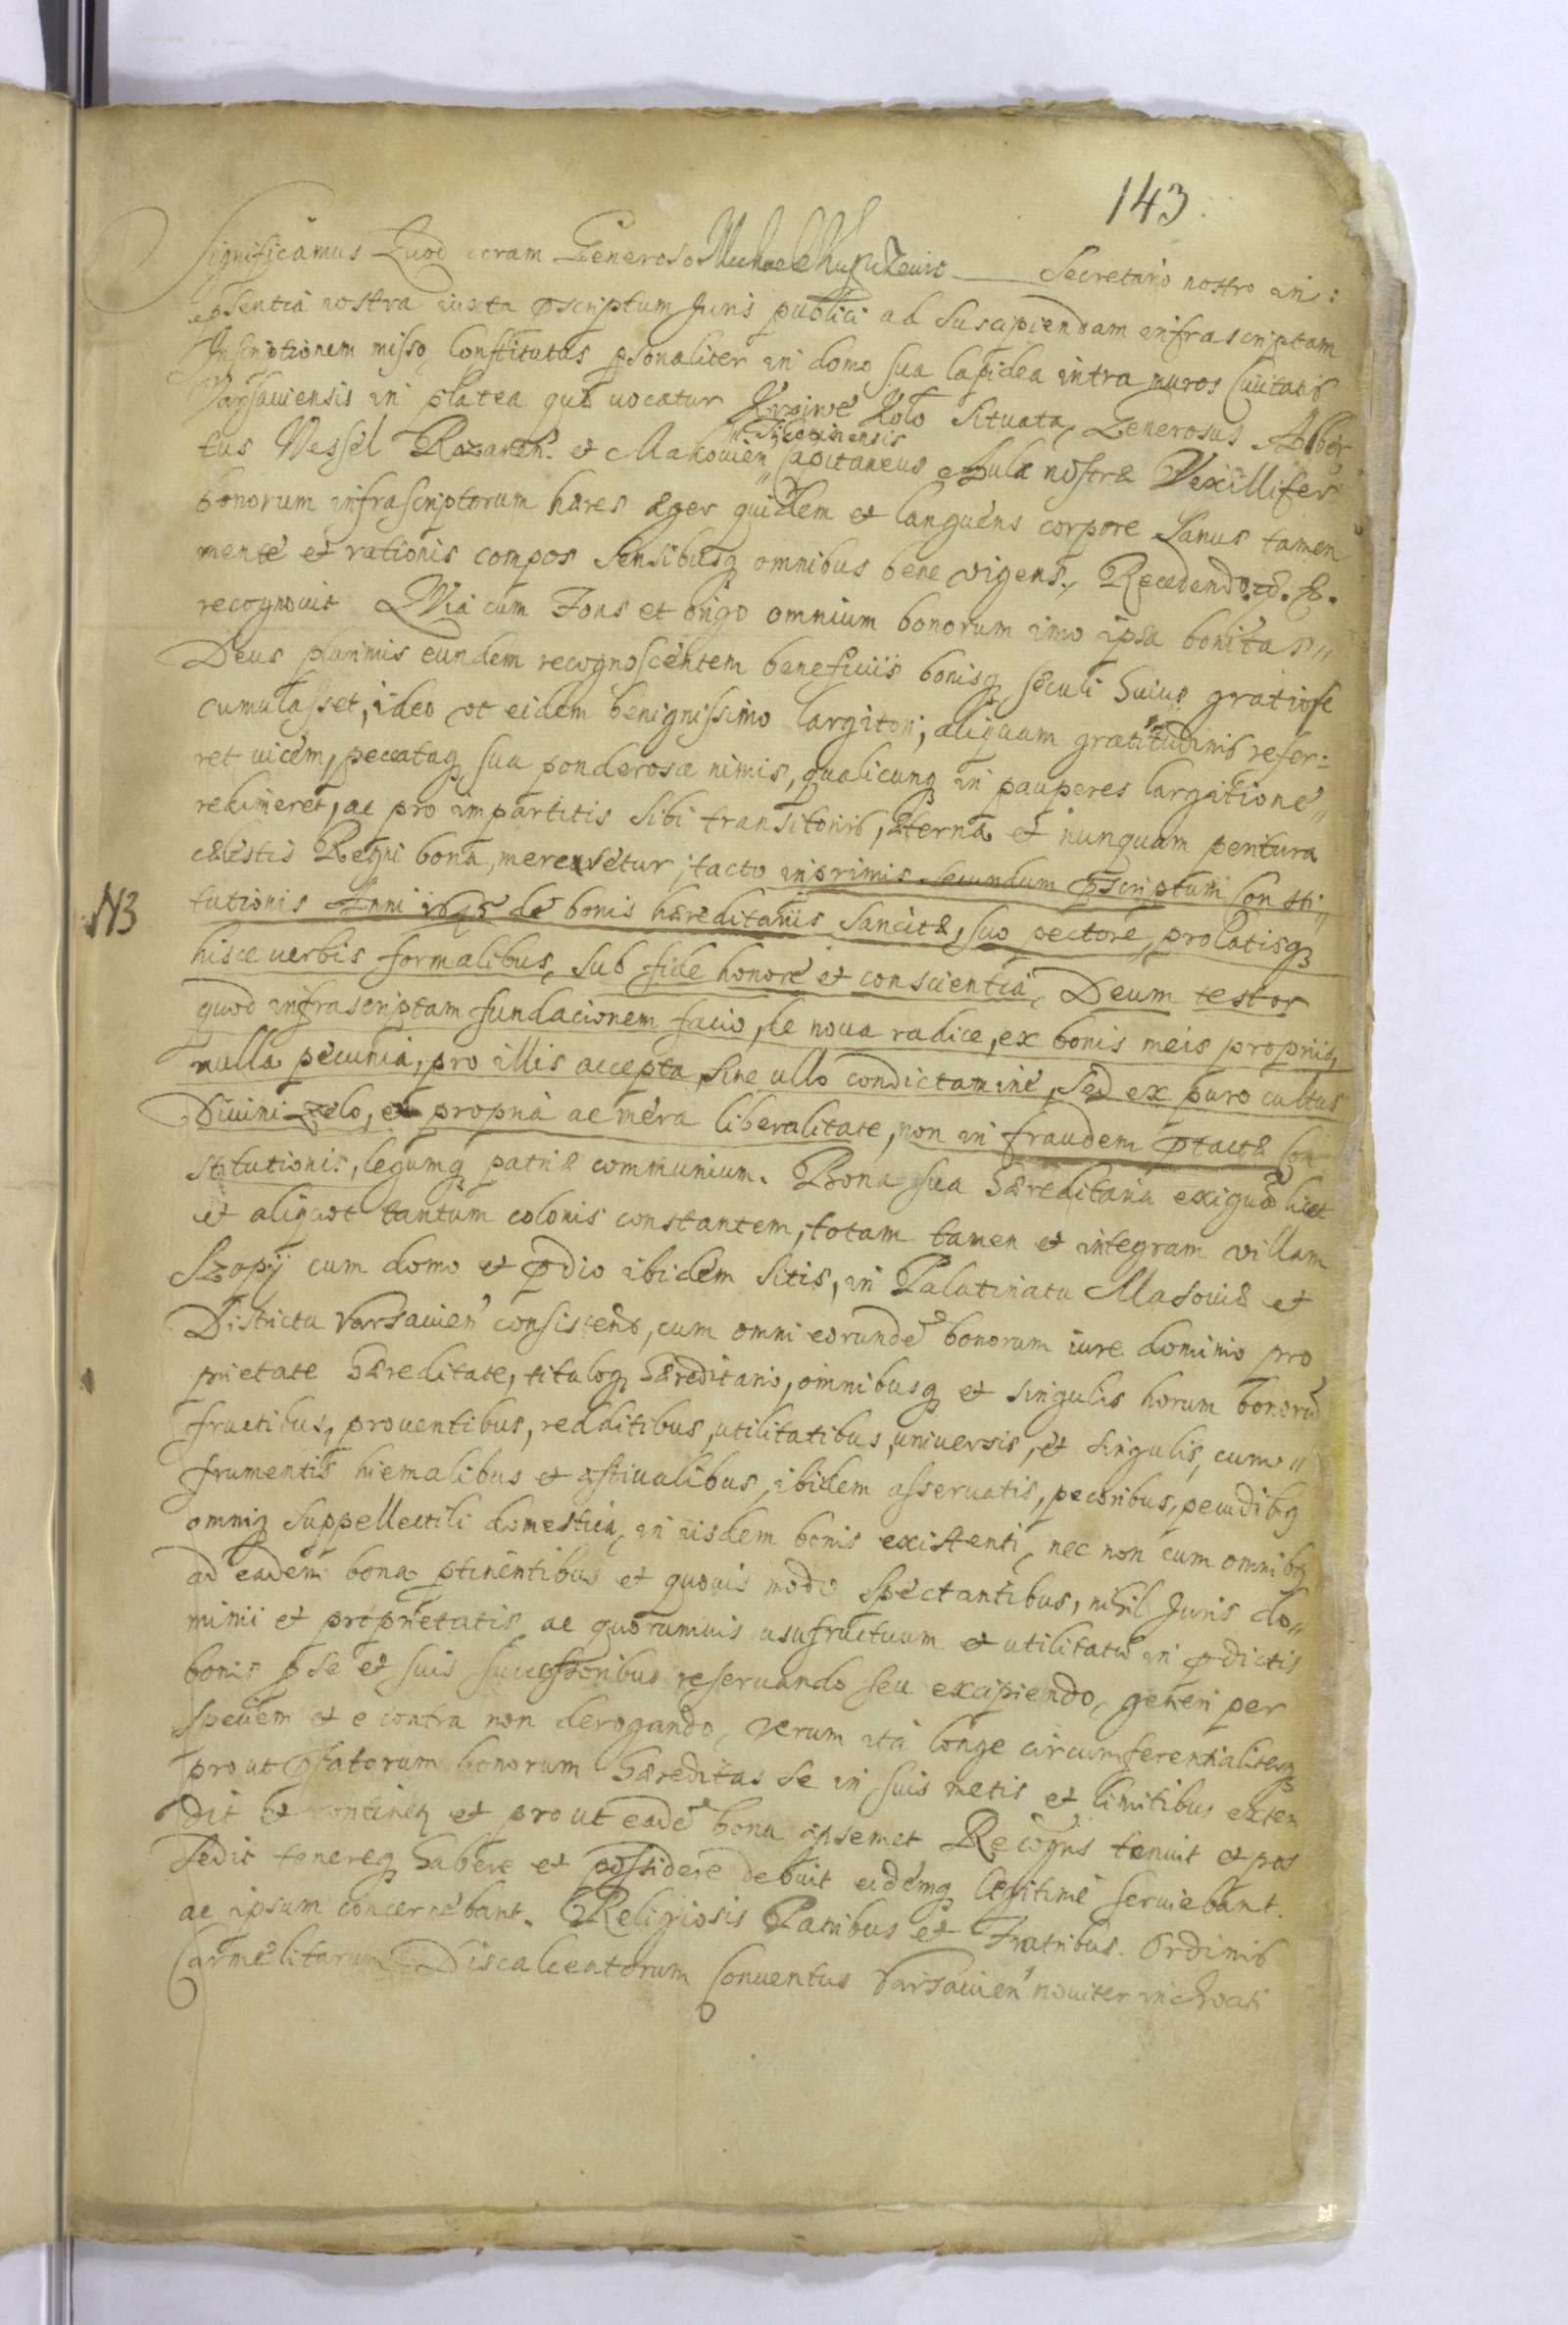 143
Significamus Quod coram Generoso Michaele Secretario nostro in:
absentia nostra iuxta pscriptum Juris publici ad Suscipiendam infrascriptam
Inscriptionem misso, Constitutus psonaliter in domo sua lapidea intra muros Ciuitatis
Varsauiensis in platea quæ uocatur Krziwe Koło Situata, Generosus Adalber
tus Wessel Rozanen. et Makouien,, Capitaneus Aulæ nostræ Vexillifer
bonorum infrascriptorum hæres æger quidem et languens corpore Sanus tamen
mente et rationis compos Sensibusq omnibus bene vigens. Recedendo. &. &.
recognouit Quia cum Fons et origo omnium bonorum imo ipsa bonitas,,
Deus plurimis eundem recognoscentem beneficiis bonisq sæculi huius gratiose
cumulasset, ideo ut eidem benignissimo largitori, aliquam gratitudinis refer:
ret uicem, peccataq sua ponderosa nimis, qualicunq in pauperes largitione,,
redimeret, ac pro impartitis Sibi transitoriis, æterna et nunquam peritura
cælestis Regni bona, mercaretur, tacto inprimis Secundum pscriptum Consti,,
NB
tutionis Anni 1635 de bonis hæreditariis Sancitæ, suo pectore, prolatisq
hisce uerbis formalibus, Sub fide honore et conscientia, Deum testor
quod infrascriptam fundacionem facio, de noua radice, ex bonis meis propriis,
nulla pecunia, pro illis accepta, Sine ullo condictamine, Sed ex puro cultus
Diuini zelo, et propria ac mera liberalitate, non in fraudem ptactæ Con
stitutionis, legumq patriæ communium. Bona sua hæreditaria exigua licet
et aliquot tantum colonis constantem, totam tamen et integram villam
Szopÿ cum domo et pdio ibidem Sitis, in Palatinatu Masouiæ et
Districtu Varsauien consisten, cum omni eorunde bonorum iure dominio pro
prietate hæreditate, tituloq hæreditario, omnibusq et singulis horum bonoru
fructibus, prouentibus, redditibus, utilitatibus, uniuersis, et singulis, cum,,
frumentis hiemalibus et æstiualibus, ibidem asseruatis, pecoribus, pecudibq
omniq Suppellectili domestica, in iisdem bonis existenti, nec non cum omnibq
ad eadem bona ptinentibus et quouis modo Spectantibus, nihil Juris do,,
minii et proprietatis ac quorumuis usufructuum et utilitatu in pdictis
bonis p se et suis successoribus reseruando seu excipiendo, generi per
speciem et e contra non derogando, verum ita longe circumferentialiterq
prout pfatorum bonorum hæreditas se in suis metis et limitibus exten
dit et continet et prout eade bona ipsemet Recogns tenuit et pos
sedit tenereq habere et possidere debuit eidemq legitime seruiebant
ac ipsum concernebant. Religiosis Patribus et Fratribus Ordinis
Carmelitarum Discalceatorum Conuentus Varsauien nouiter inchoati